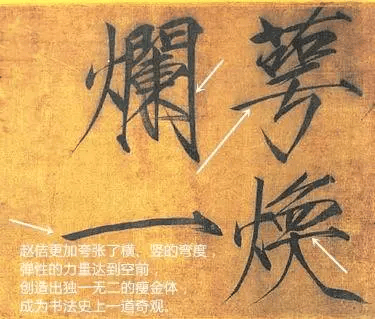 萼煥
爛一
赵佶更加夸张了横、竖的弯度，
弹性的力量达到空前，
创造出独一无二的瘦金体，
成为书法史上一道奇观。